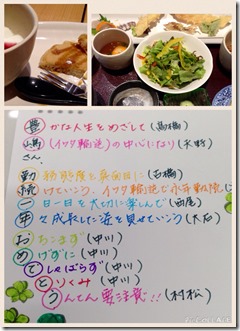 豊かな人生をめざして(高橋)
(イワタ輪達)の中心になり(木村)
さん
勤務態度を真面目に(石橋)
続けていこう、イワタ輪達で
一日一日を大切に楽しんで(西尾)
年々成長した姿を見せていこう(大石)
おちこまず(中川)
めげずに(中川)
でしゃばらず(中川)
とりくみ(中川)
うんてん要注意!!(村松)